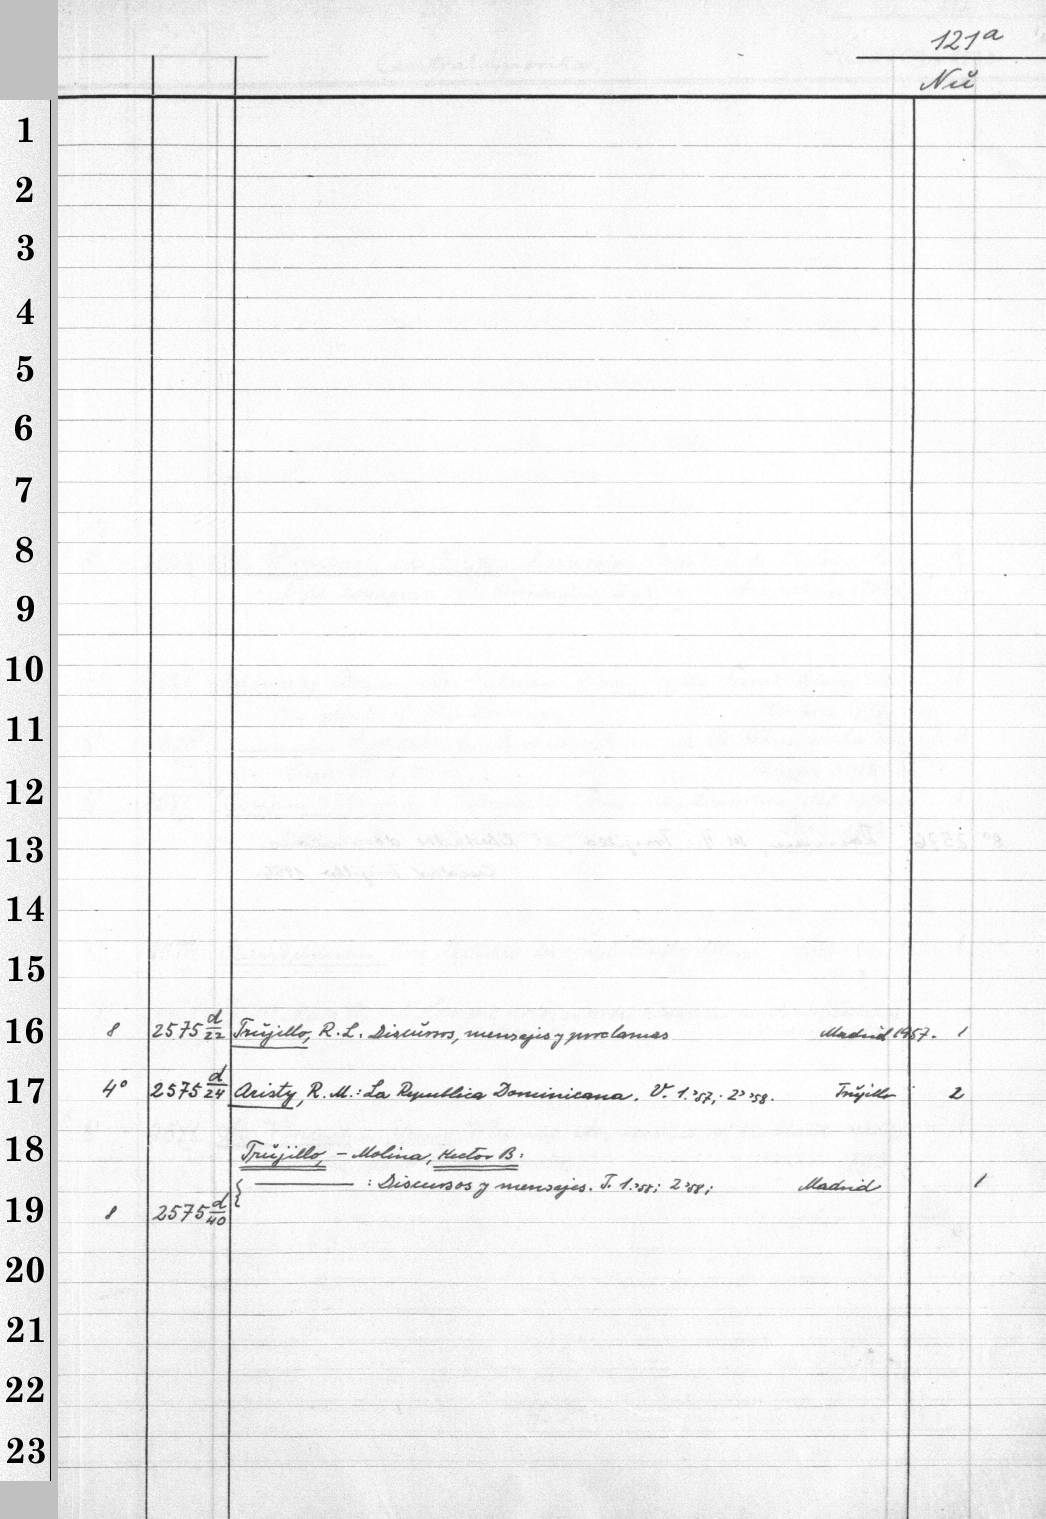 121a
Nŭ
1
2
3
4
5
6
7
8
9
10
11
12
13
14
15
16 8 2575 d/22 Trŭjillo, R. L. Discŭrsos, mensejis y proclamas Madrid 1957. 1
17 4° 2575 d/24 Aristy, R. M.: La Republica Dominicana. V. 1.'57; 2'58. Trŭjillo 2
18 Trŭjillo, - Molina, Hector B:
: Discursos y mensejes. T. 1.'58; 2'58; Madrid 1
19 8 2575 d/40
20
21
22
23